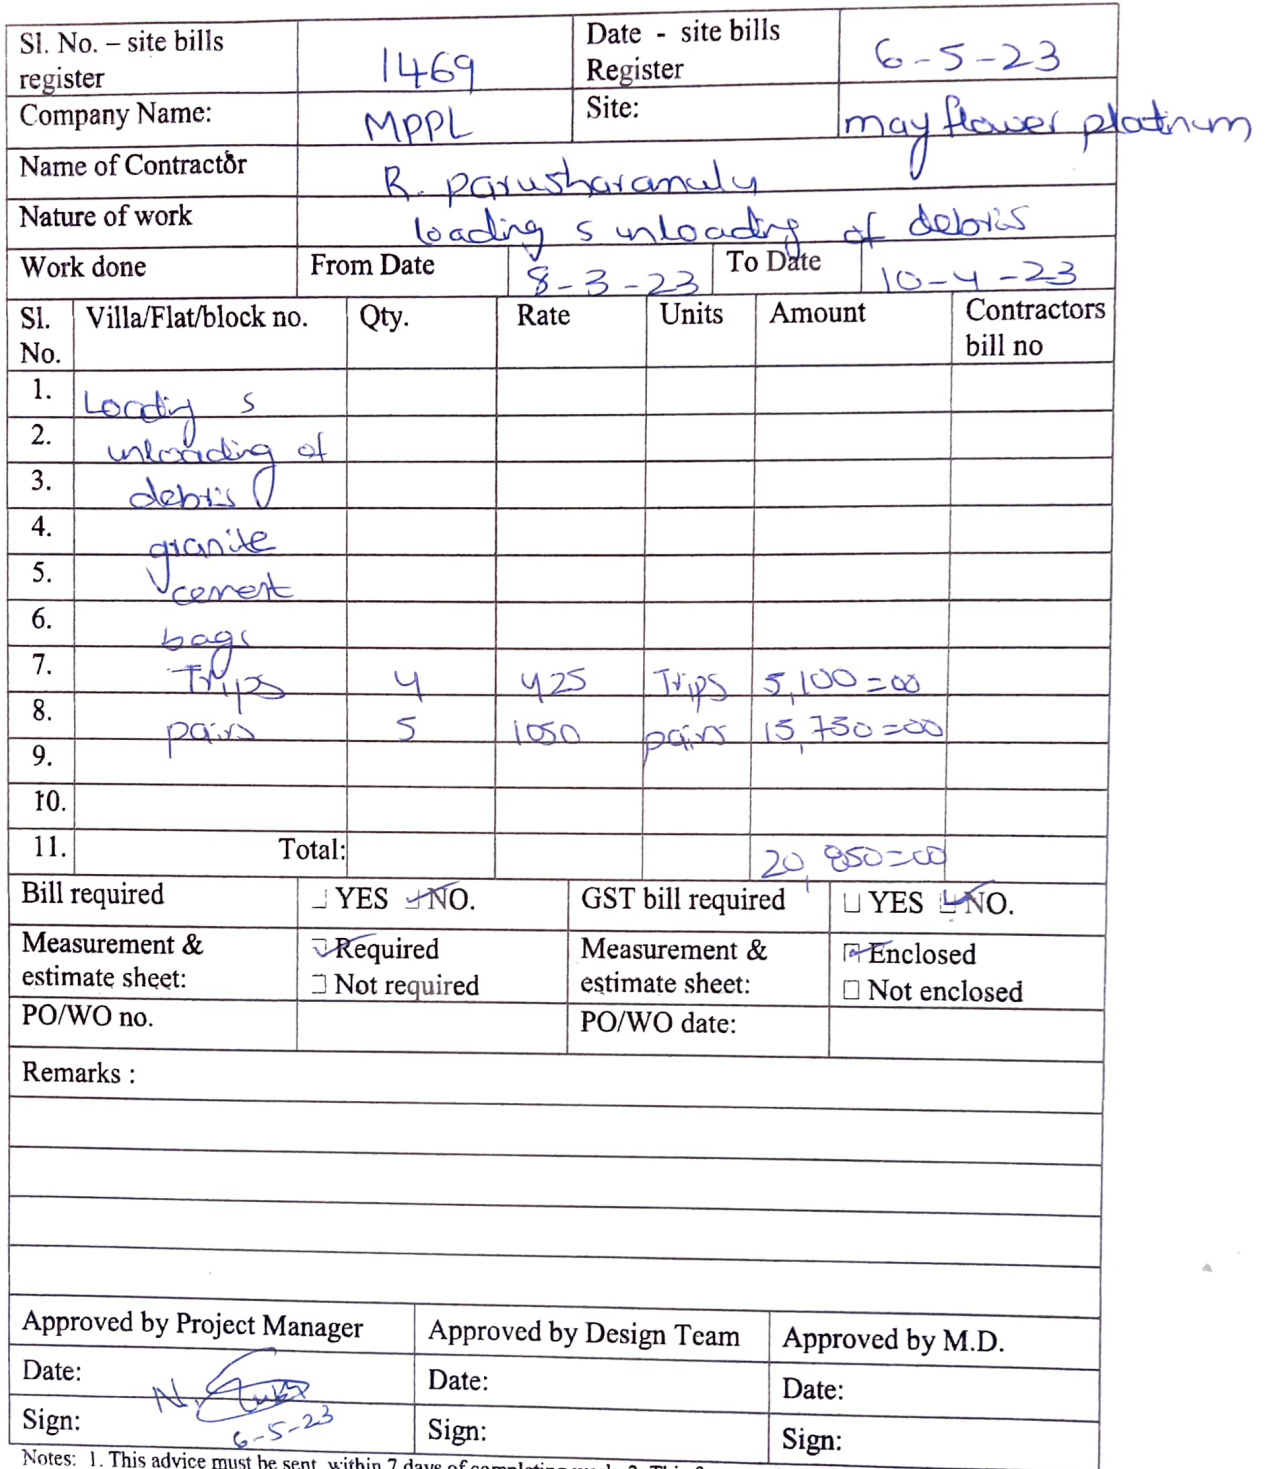 Sl. No. – site bills register 1469 Date - site bills Register 6-5-23
Company Name: MPPL Site: mayflower platnum
Name of Contractor R. parusharamulu
Nature of work loading s unloading of debris
Work done From Date 8-3-23 To Date 10-4-23
Sl. No. Villa/Flat/block no. Qty. Rate Units Amount Contractors bill no
1. Loading s
2. unloading of
3. debris
4. granite
5. cement
6. bags
7. Trips 4 425 Trips 5,100=00
8. pairs 5 1050 pairs 15,750=00
9.
10.
11. Total: 20,850=00
Bill required YES NO. GST bill required YES NO.
Measurement & estimate sheet: Required Not required Measurement & estimate sheet: Enclosed Not enclosed
PO/WO no. PO/WO date:
Remarks :
Approved by Project Manager Approved by Design Team Approved by M.D.
Date: Date: Date:
Sign: 6-5-23 Sign: Sign:
Notes: 1. This advice must be sent within 7 days of